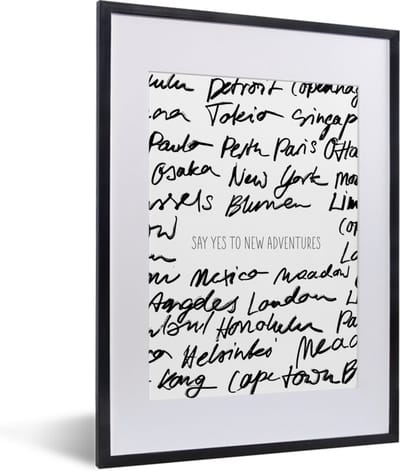 lulu Detroit Copenhag
ora Tokio Singap
Paulo Perth Paris Otta
Osaka New York Moa
ssels Blumen Lim
ow Co
SAY YES TO NEW ADVENTURES
La
Mexico Meadow
Angeles London L
nbul Honolulu Pa
Helsinki Mead
Kong Cape Town B